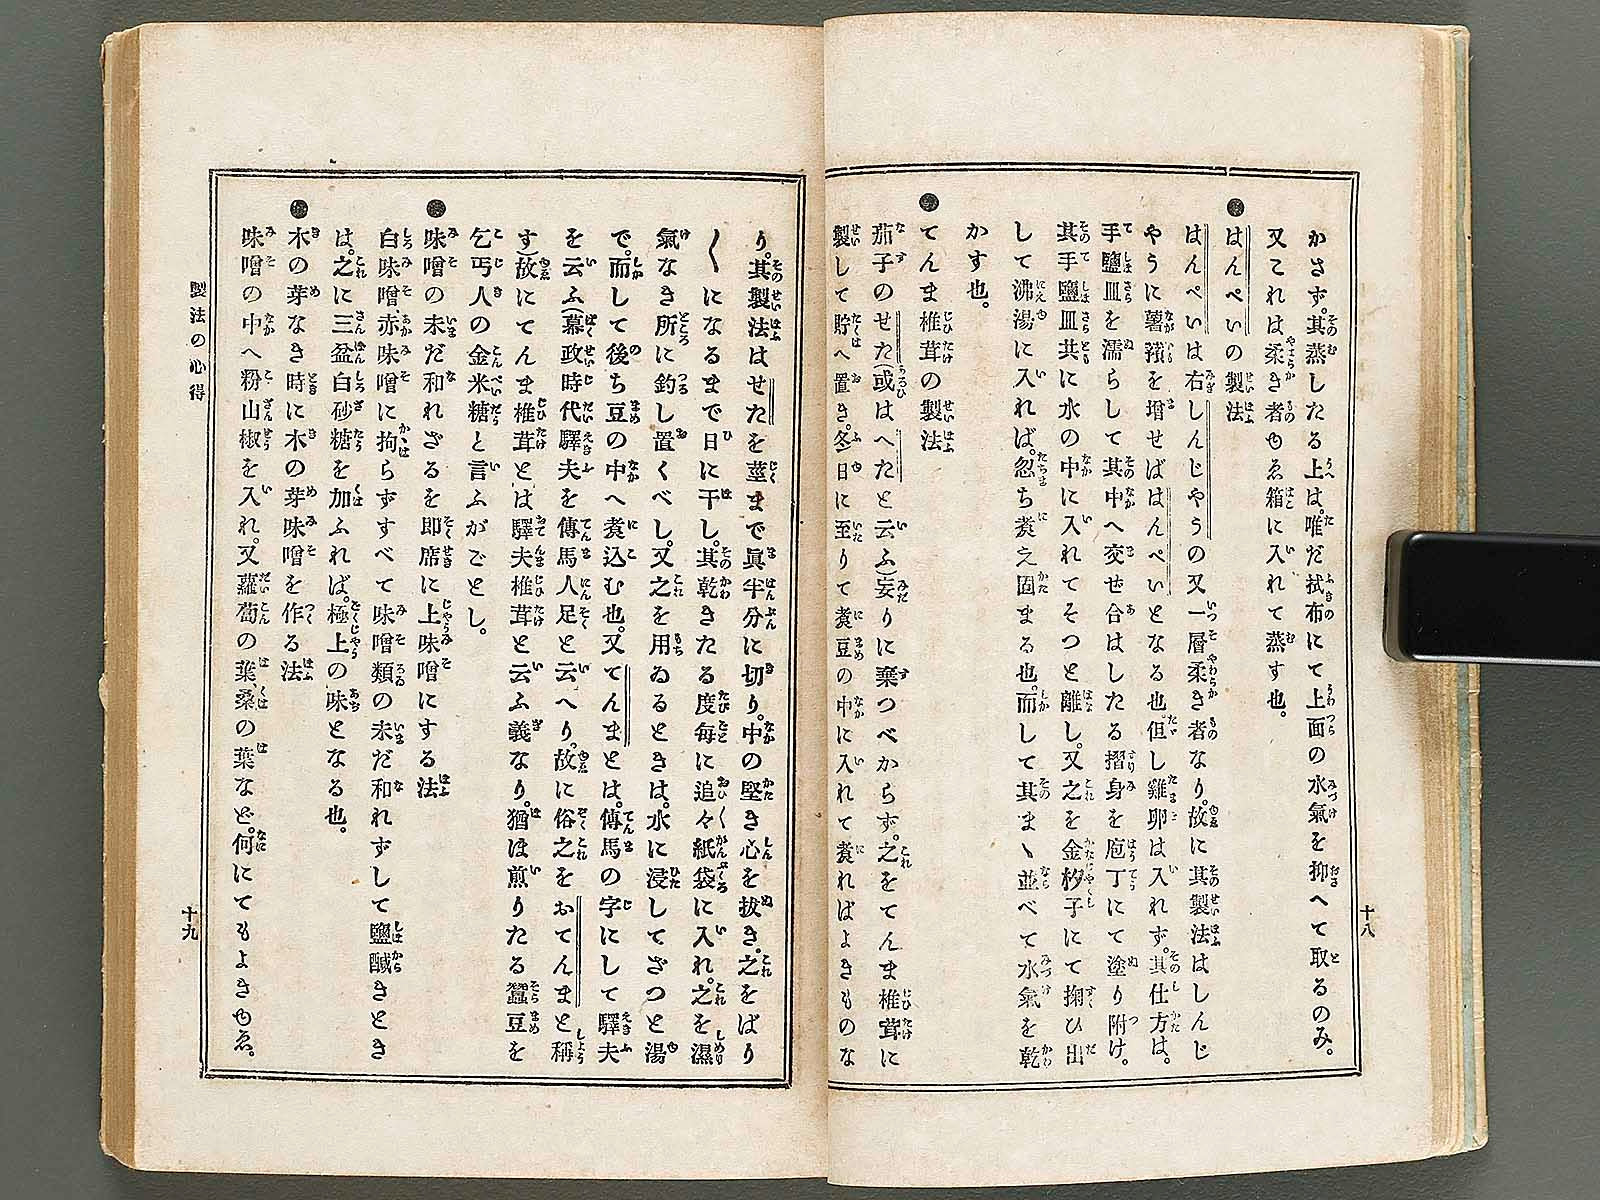 かさず。其蒸したる上は。唯だ拭布にて上面の水氣を抑へて取るのみ。
又これは柔き者ゆゑ箱に入れて蒸す也。
●はんぺいの製法
はんぺいは右しんじやうの又一層柔き者なり。故に其製法はしんじ
やうに薯蕷を増せばはんぺいとなる也。但し雞卵は入れず。其仕方は。
手鹽皿を濡らして其中へ交ぜ合はしたる摺身を庖丁にて塗り附け。
其手鹽皿共に水の中に入れてそつと離し。又之を金杓子にて掬ひ出
して沸湯に入れば。忽ち煑え固まる也。而して其まゝ並べて水氣を乾
かす也。
●てんま椎茸の製法
茄子のせた(或はへたと云ふ)妄りに棄つべからず。之をてんま椎茸に
製して貯へ置き。冬日に至りて煑豆の中に入れて煑ればよきものな
十八
り。其製法はせたを莖まで眞半分に切り。中の堅き心を拔き。之をばり
〱になるまで日に干し。其乾きたる度毎に追々紙袋に入れ。之を濕
氣なき所に釣し置くべし。又之を用ゐるときは。水に浸してざつと湯
で。而して後ち豆の中へ煑込む也。又てんまとは。傳馬の字にして驛夫
を云ふ(幕政時代驛夫を傳馬人足と云へり。故に俗之をおてんまと稱
す)故にてんま椎茸とは驛夫椎茸と云ふ義なり。猶ほ煎りたる蠶豆を
乞丐人の金米糖と言ふがごとし。
●味噌の未だ和れざるを即席に上味噌にする法
白味噌、赤味噌に拘らずすべて味噌類の未だ和れずして鹽醎きとき
は。之に三盆白砂糖を加ふれば。極上の味となる也。
●木の芽なき時に木の芽味噌を作る法
味噌の中へ粉山椒を入れ。又蘿蔔の葉、桑の葉など。何にてもよきゆゑ。
製法の心得
十九